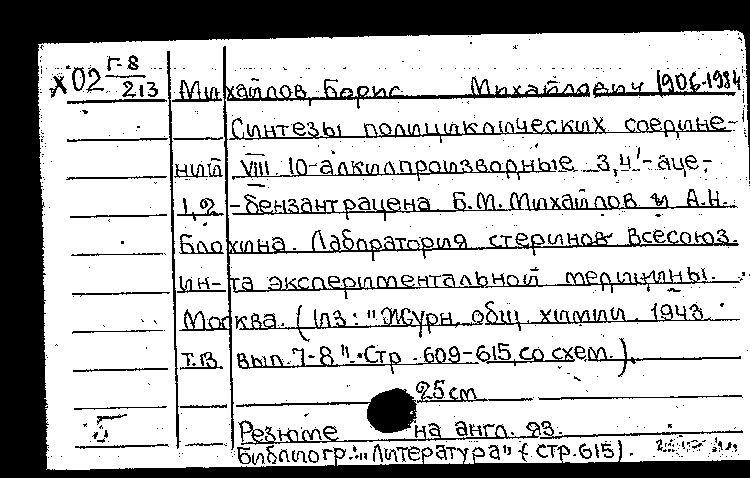 Х02 Г-8/213
Михайлов, Борис Михайлович 1906-1984
Синтезы полициклических соедине-
ний VIII 10-алкилпроизводные 3,4'-аце-
1,2-бензантрацена Б.М. Михайлов и А.Н.
Блохина. Лаборатория стеринов Всесоюз.
ин-та экспериментальной медицины.
Москва. (Из: "Журн. общ. химии. 1943
Т.13. вып. 7-8". Стр. 609-615, со схем.).
25 см
Б Резюме на англ. яз.
Библиогр.: "Литература" (стр. 615).